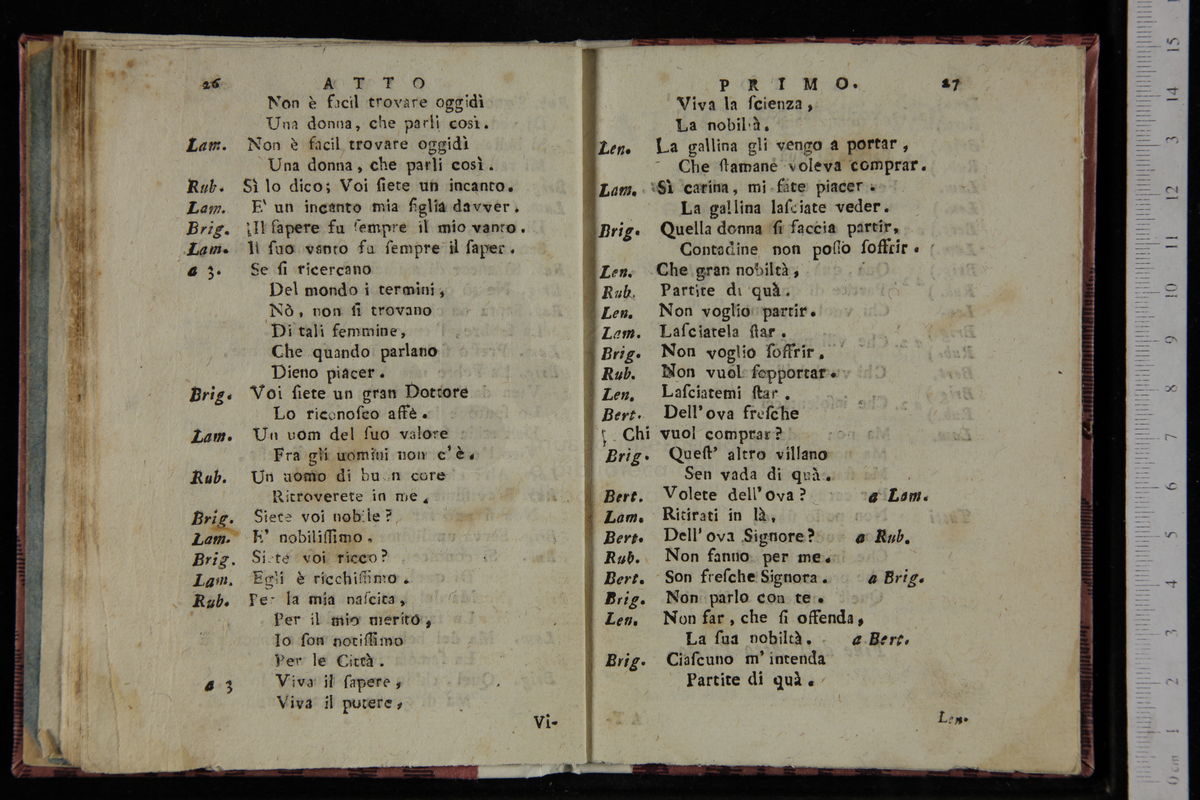 26 ATTO
Non è facil trovare oggidì
Una donna, che parli così.
Lam. Non è facil trovare oggidì
Una donna, che parli così.
Rub. Sì lo dico; Voi ſiete un incanto.
Lam. E' un incanto mia figlia davver.
Brig. Il ſapere fu ſempre il mio vanto.
Lam. Il ſuo vanto fu ſempre il ſaper.
a 3. Se ſi ricercano
Del mondo i termini,
Nò, non ſi trovano
Di tali femmine,
Che quando parlano
Dieno piacer.
Brig. Voi ſiete un gran Dottore
Lo riconoſco affè.
Lam. Un uom del ſuo valore
Fra gli uomini non c'è.
Rub. Un uomo di buon core
Ritroverete in me.
Brig. Siete voi nobile?
Lam. E' nobiliſſimo.
Brig. Siete voi ricco?
Lam. Egli è ricchiſſimo.
Rub. Per la mia naſcita,
Per il mio merito,
Io ſon notiſſimo
Per le Città.
a 3 Viva il ſapere,
Viva il potere,
Vi-
PRIMO. 27
Viva la ſcienza,
La nobiltà.
Len. La gallina gli vengo a portar,
Che ſtamane voleva comprar.
Lam. Sì carina, mi fate piacer.
La gallina laſciate veder.
Brig. Quella donna ſi faccia partir,
Contadine non poſſo ſoffrir.
Len. Che gran nobiltà,
Rub. Partite di quà.
Len. Non voglio partir.
Lam. Laſciatela ſtar.
Brig. Non voglio ſoffrir.
Rub. Non vuol ſopportar.
Len. Laſciatemi ſtar.
Bert. Dell'ova freſche
Chi vuol comprar?
Brig. Queſt' altro villano
Sen vada di quà.
Bert. Volete dell'ova? a Lam.
Lam. Ritirati in là,
Bert. Dell'ova Signore? a Rub.
Rub. Non fanno per me.
Bert. Son freſche Signora. a Brig.
Brig. Non parlo con te.
Len. Non far, che ſi offenda,
La ſua nobiltà. a Bert.
Brig. Ciaſcuno m'intenda
Partite di quà.
Len.